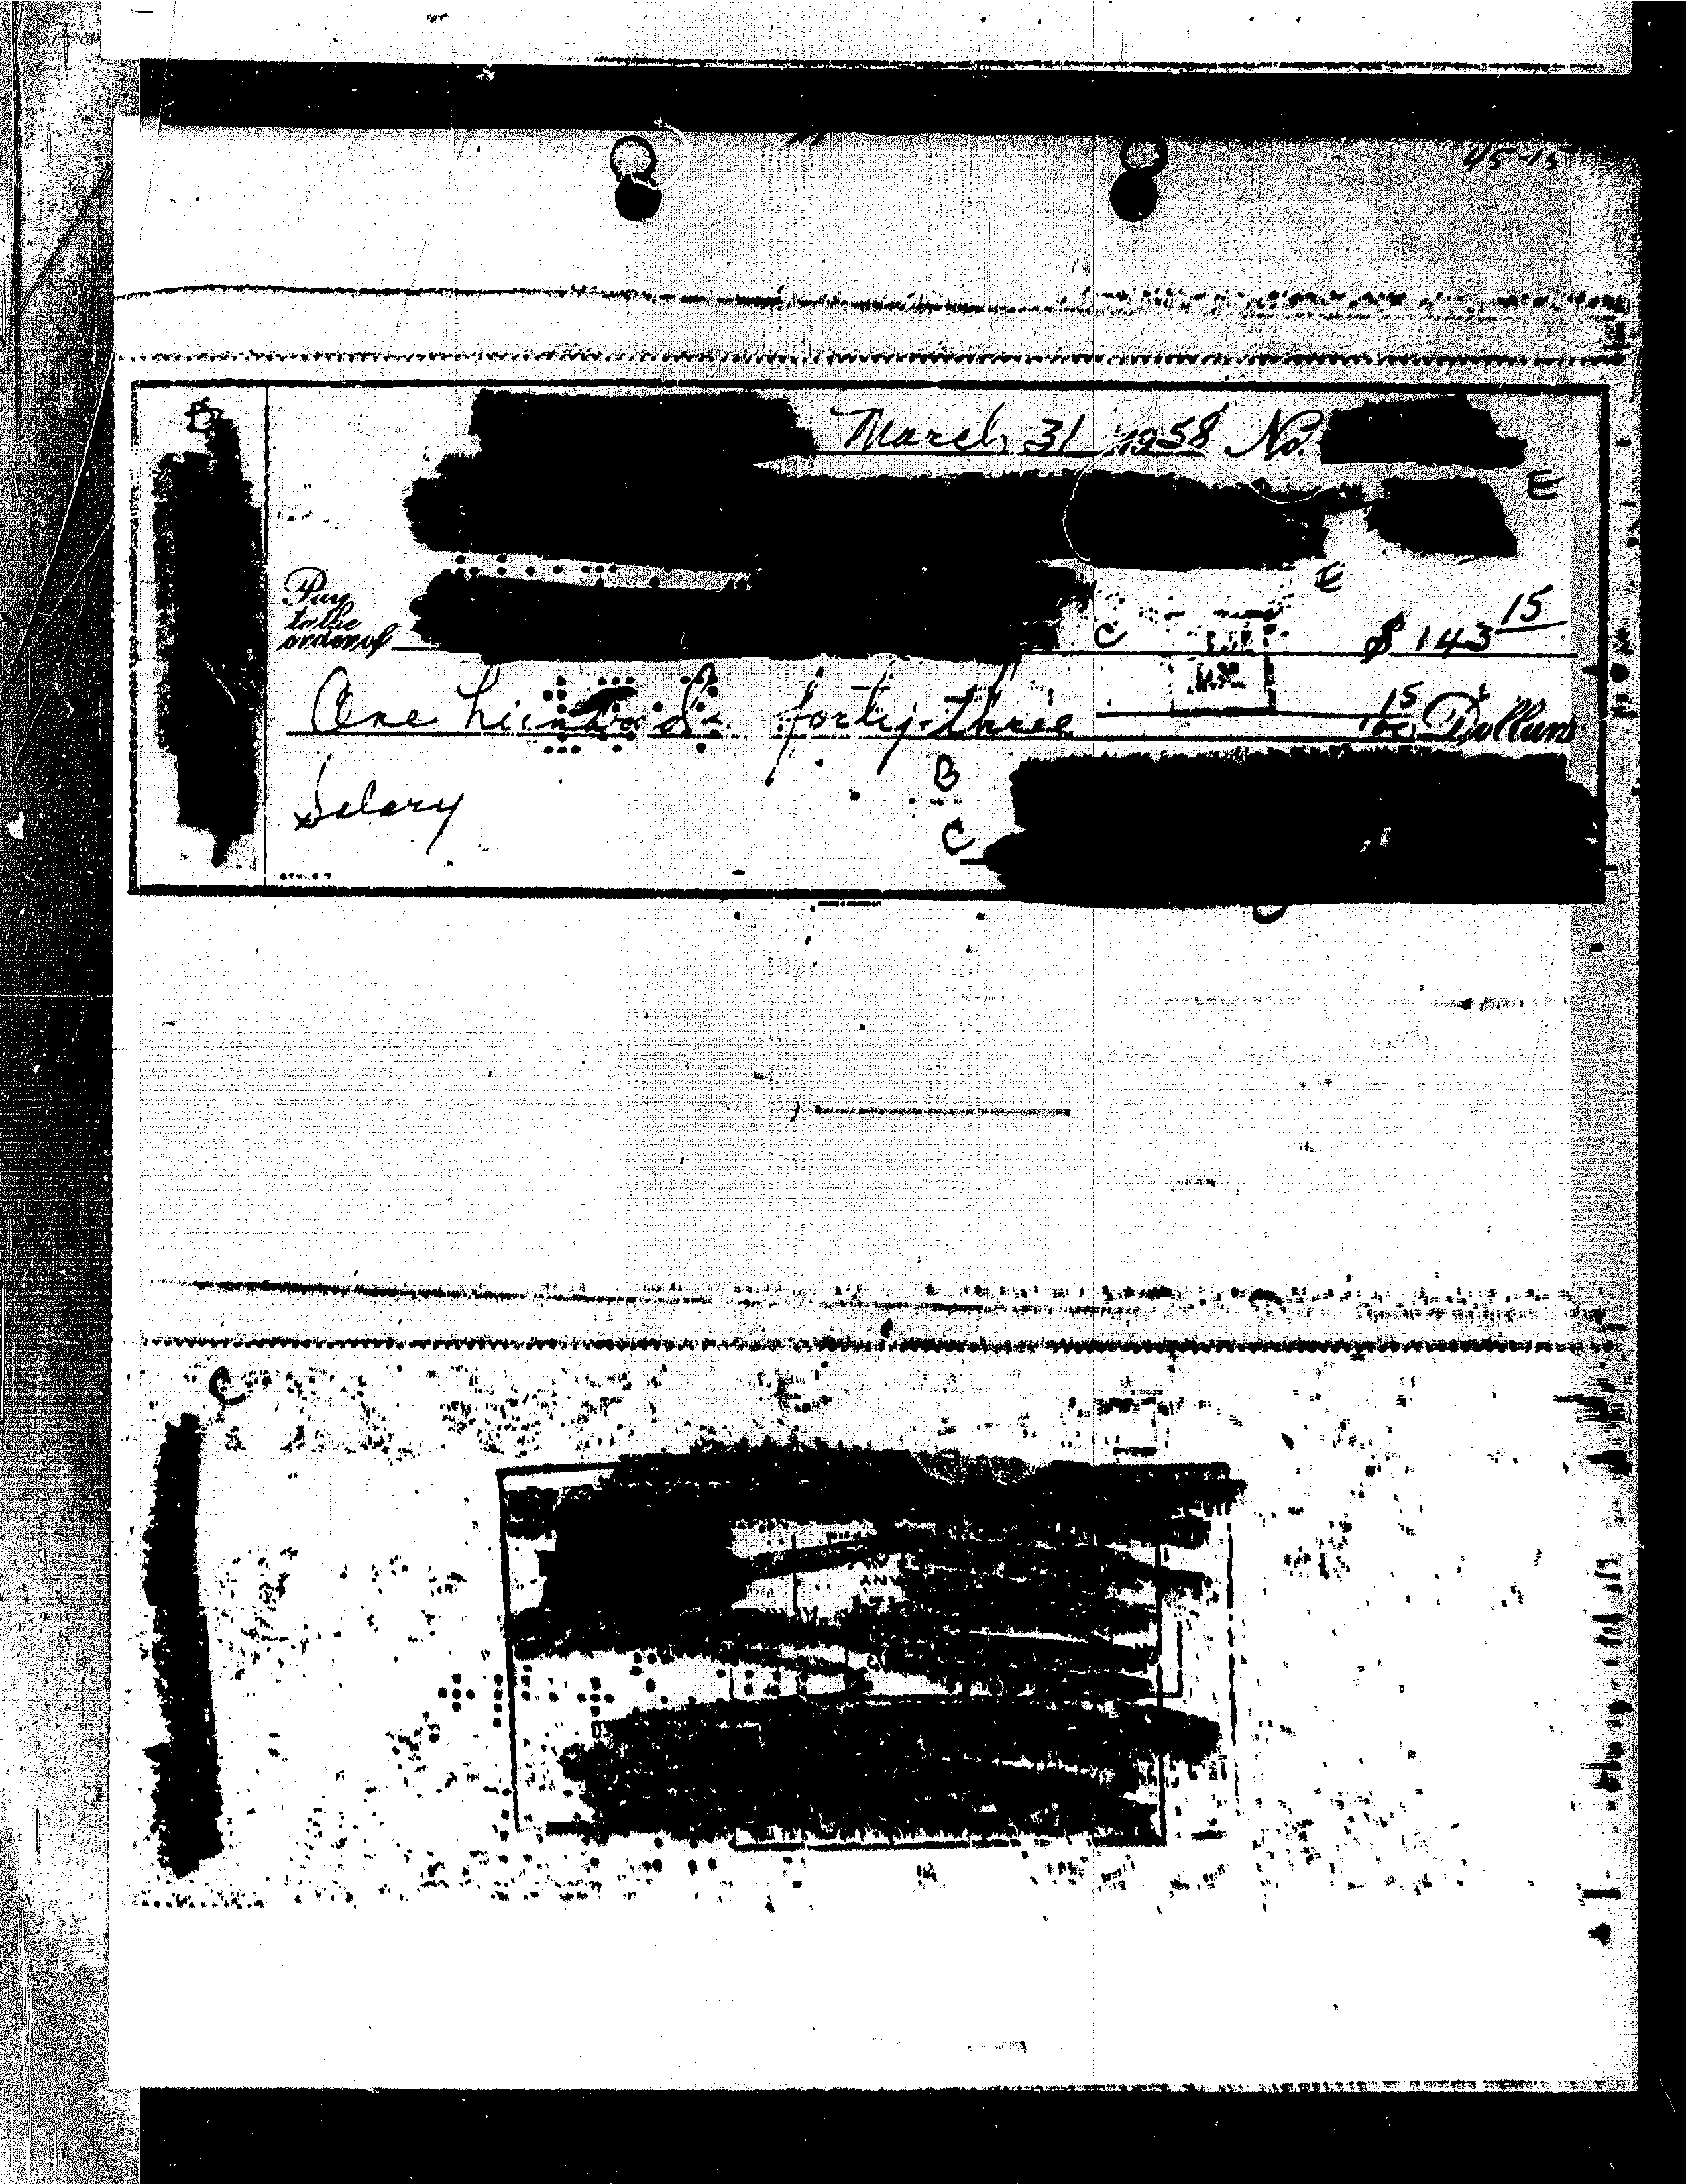 45-15
B
March 31 1958 No.
E
E
Pay
to the
order of
C
$ 143 15
One hundred forty-three 15/100 Dollars
B
Salary
C
C